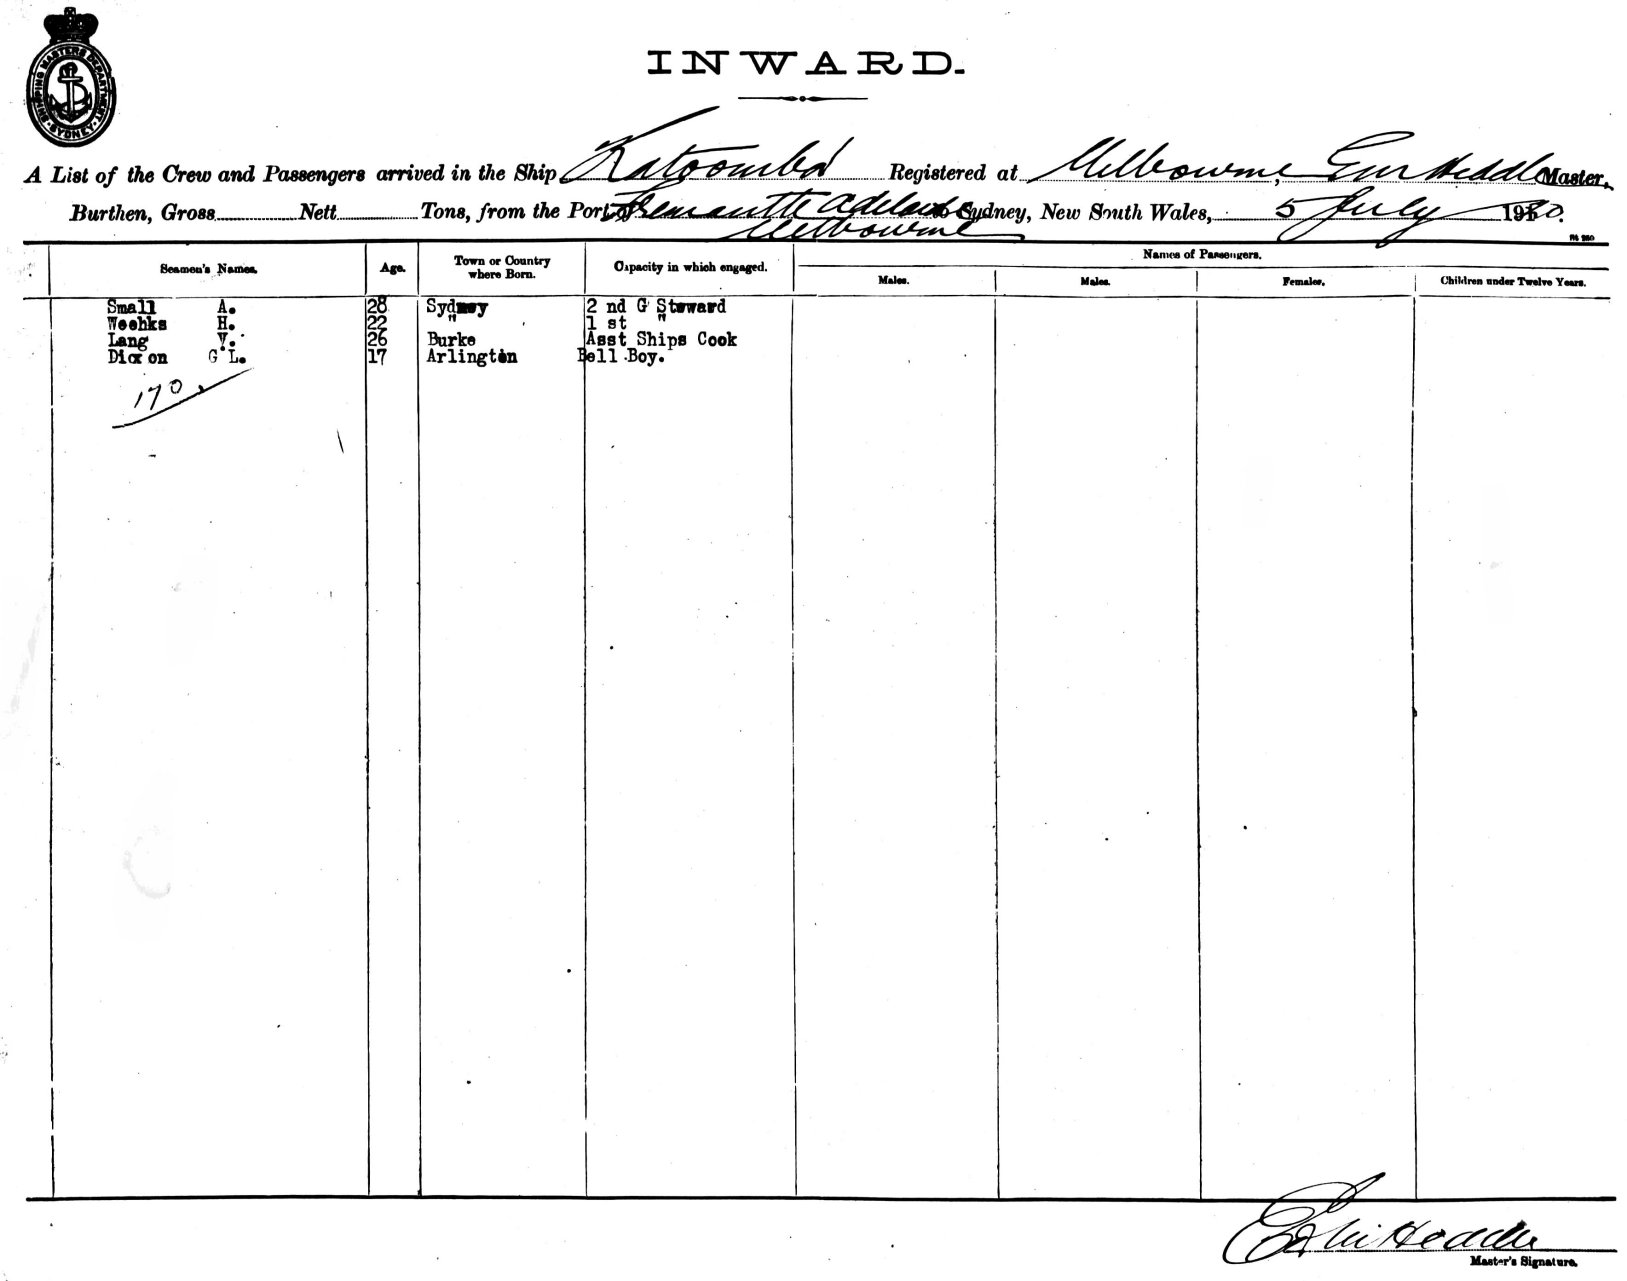 SHIPPING MASTERS DEPARTMENT. SYDNEY.
INWARD.
A List of the Crew and Passengers arrived in the Ship Katoomba Registered at Melbourne, Heddle Master,
Burthen, Gross Nett Tons, from the Port of Fremantle Adelaide to Sydney, New South Wales, 5 July 1920.
Melbourne
Seamen's Names. Age. Town or Country where Born. Capacity in which engaged. Names of Passengers.
Males. Males. Females. Children under Twelve Years.
Small A. 28 Sydney 2 nd G Steward
Weehks H. 22 " 1 st "
Lang V. 26 Burke Asst Ships Cook
Dixon G L. 17 Arlington Bell Boy.
170.
Heddle
Master's Signature.